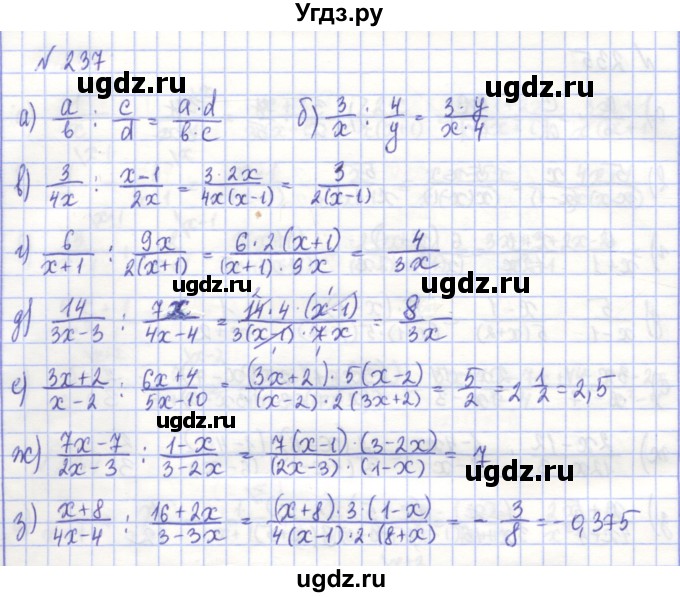 Угдз.ру
№ 237
ugdz.ru ugdz.ru
а) a/b : c/d = a·d/b·c б) 3/x : 4/y = 3·y/x·4
в) 3/4x : x-1/2x = 3·2x/4x(x-1) = 3/2(x-1)
г) 6/x+1 : 9x/2(x+1) = 6·2(x+1)/(x+1)·9x = 4/3x
ugdz.ru
д) 14/3x-3 : 7x/4x-4 = 14·4·(x-1)/3(x-1)·7x = 8/3x
ugdz.ru ugdz.ru
е) 3x+2/x-2 : 6x+4/5x-10 = (3x+2)·5(x-2)/(x-2)·2(3x+2) = 5/2 = 2 1/2 = 2,5
ж) 7x-7/2x-3 : 1-x/3-2x = 7(x-1)·(3-2x)/(2x-3)·(1-x) = 7
ugdz.ru
з) x+8/4x-4 : 16+2x/3-3x = (x+8)·3·(1-x)/4(x-1)·2·(8+x) = -3/8 = -0,375
ugdz.ru ugdz.ru
ugdz.ru